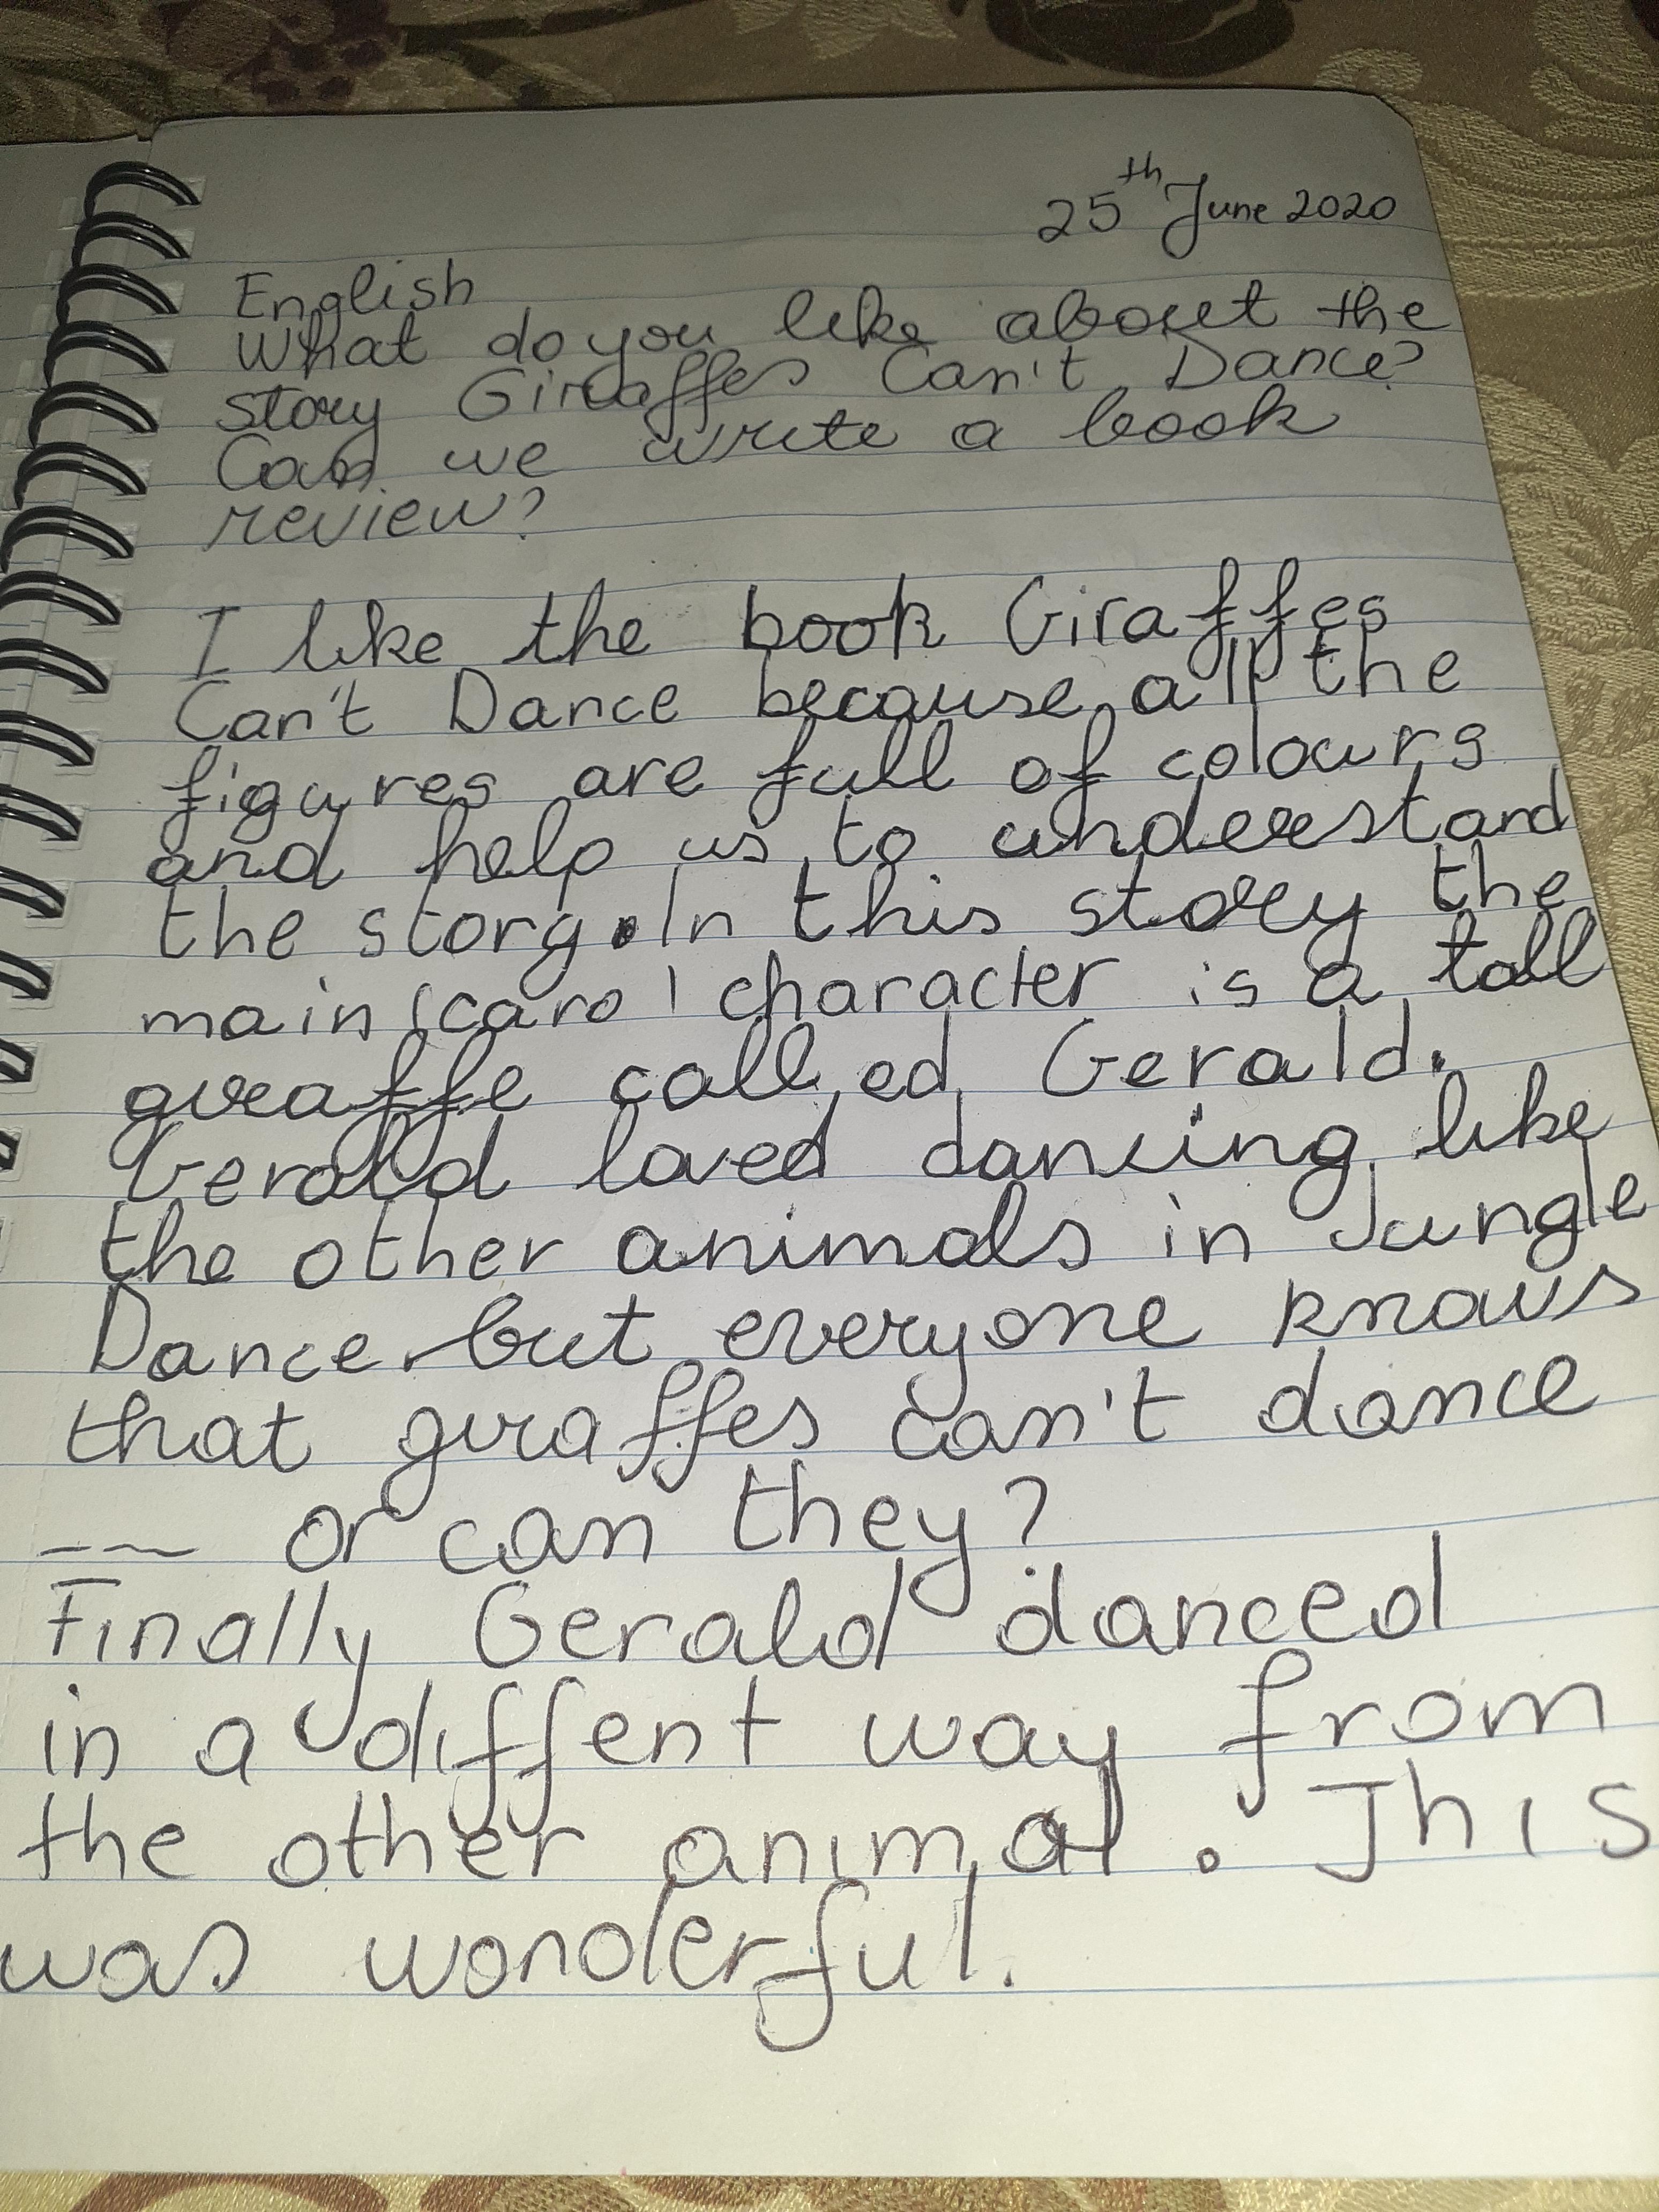 25th June 2020
English
What do you like about the
story Giraffes Can't Dance?
Can we write a book
review?
I like the book Giraffes
Can't Dance because all the
figures are full of colours
and help us to understand
the story. In this story the
main (caro) character is a tall
giraffe called Gerald.
Gerald loved dancing like
the other animals in Jungle
Dance but everyone knows
that giraffes can't dance
-- or can they?
Finally Gerald danced
in a diffent way from
the other animal. This
was wonderful.